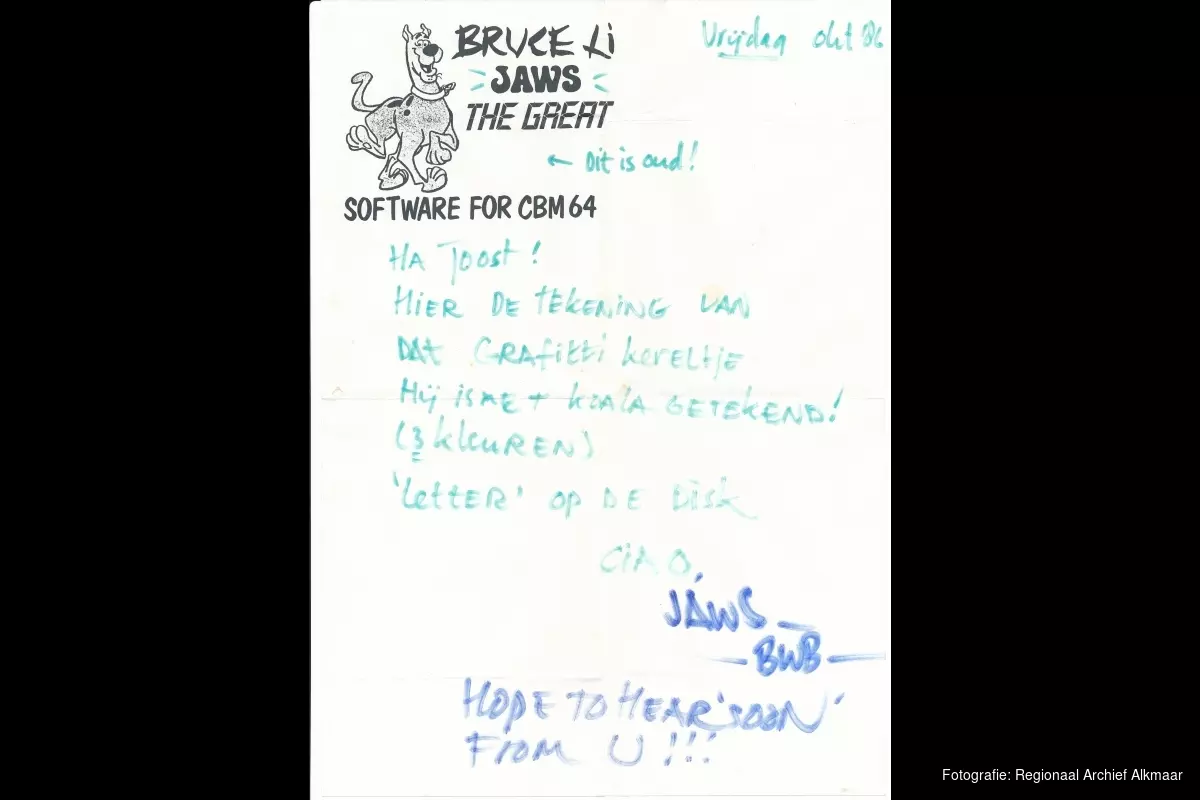 Vrijdag okt 86
BRUCE Li
JAWS
THE GREAT
← Dit is oud!
SOFTWARE FOR CBM 64
HA Joost!
HIER DE TEKENING VAN
DAT GRAfitti kereltje
Hij is met KOALA GETEKEND!
(3 kleuren)
'letter' op DE Disk
CIAO,
JAWS
—BWB—
HOPE TO HEAR 'SOON'
FROM U!!!
Fotografie: Regionaal Archief Alkmaar